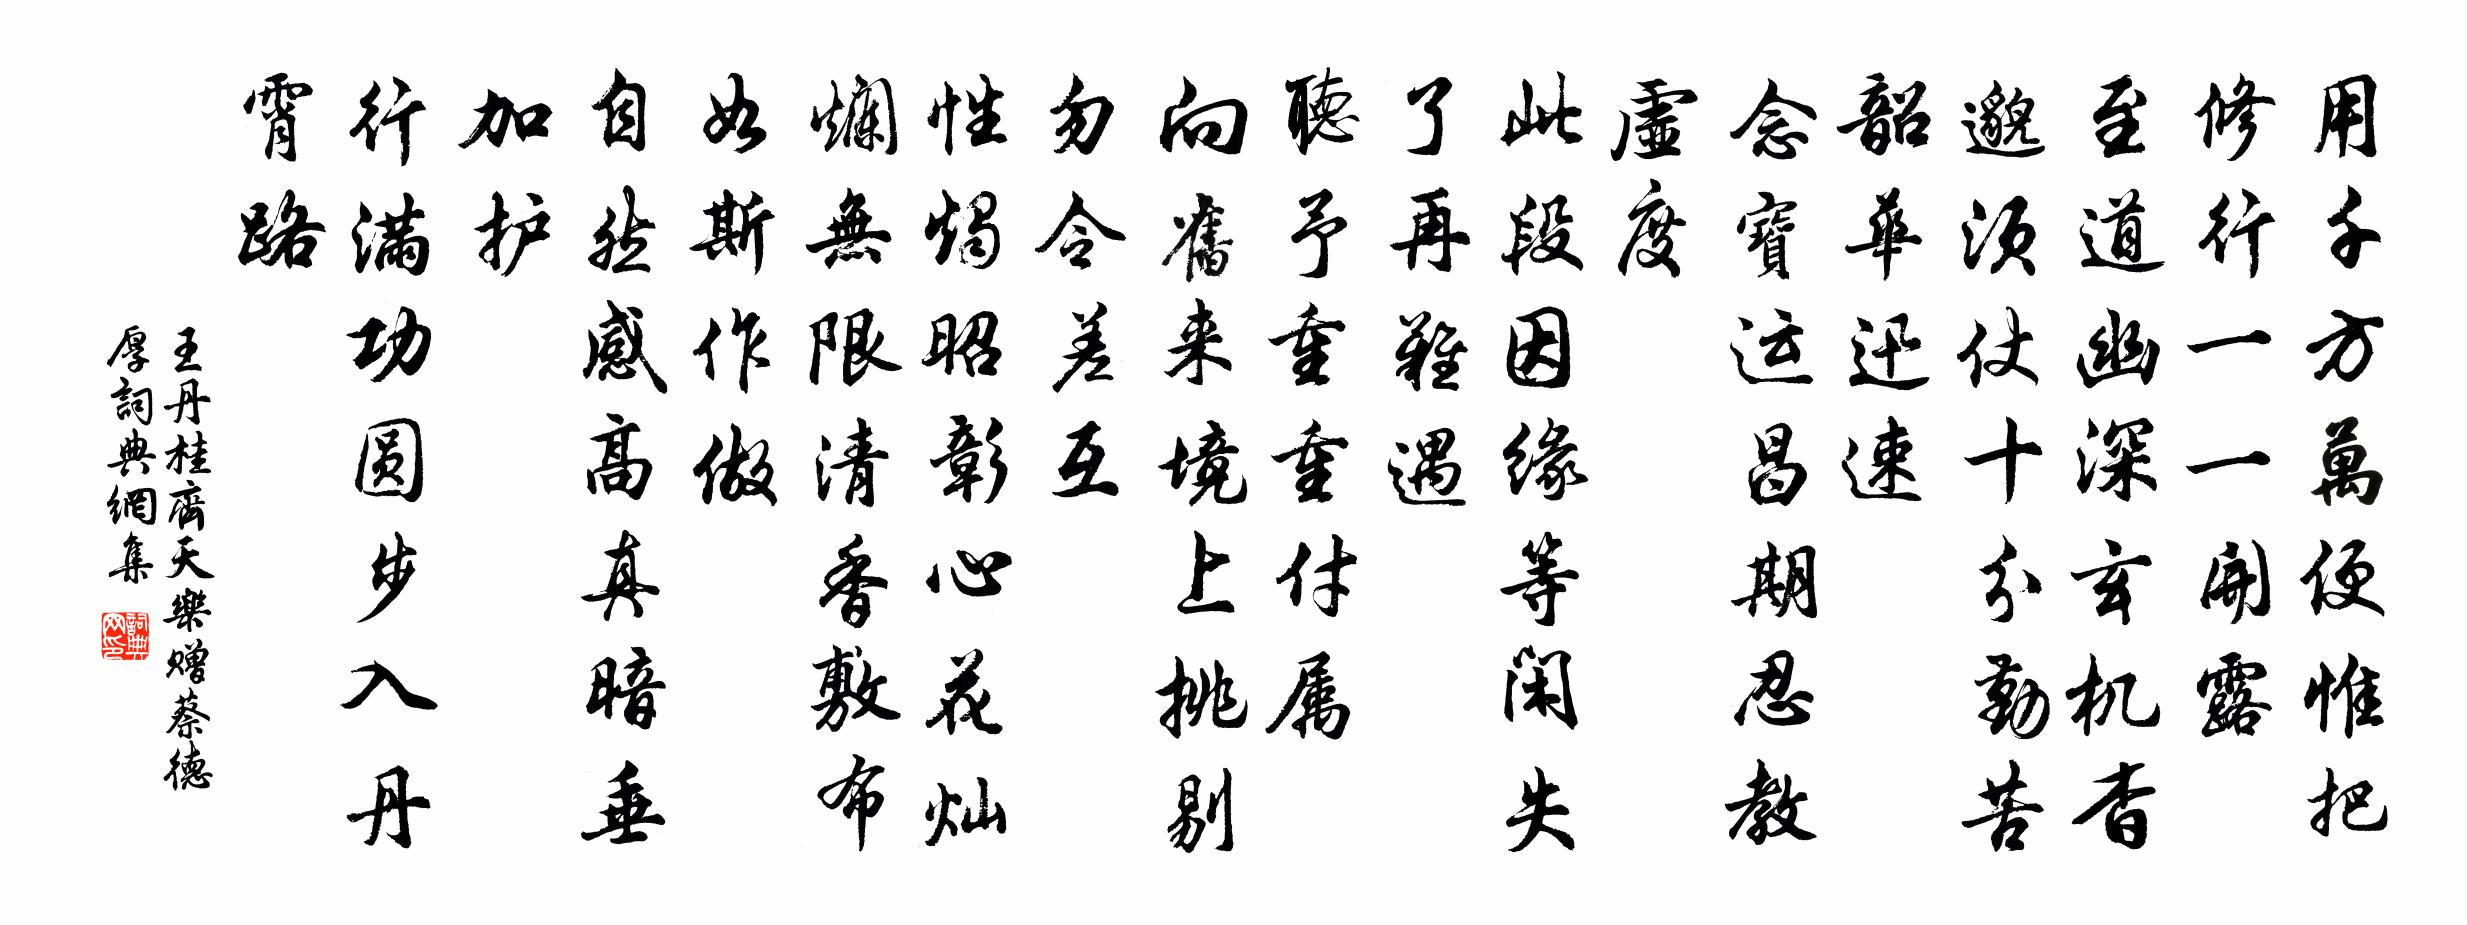 用千方萬便惟把
修行一一開露
至道幽深玄机杳
邈须仗十分勤苦
韶華迅速
念寶运昌期忍教
虛度
此段因缘等闲失
了再難遇
聽予重重付属
向舊来境上挑剔
勿令差互
性烛昭彰心花灿
爛無限清香敷布
如斯作做
自然感高真暗垂
加护
行满功圆步入丹
霄路
王丹桂齊天樂赠蔡德
厚詞典網集
詞典网印